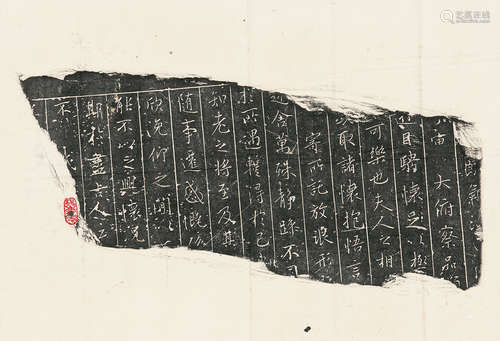 朗氣
宙大府察品
遊目騁懷足以極
可樂也夫人之相
取諸懷抱悟言
寄所託放浪形
舍萬殊靜躁不同
於所遇輒得於己
知老之將至及其
隨事遷感慨係
欣俛仰之間
能不以之興懷況
期於盡古人云
不